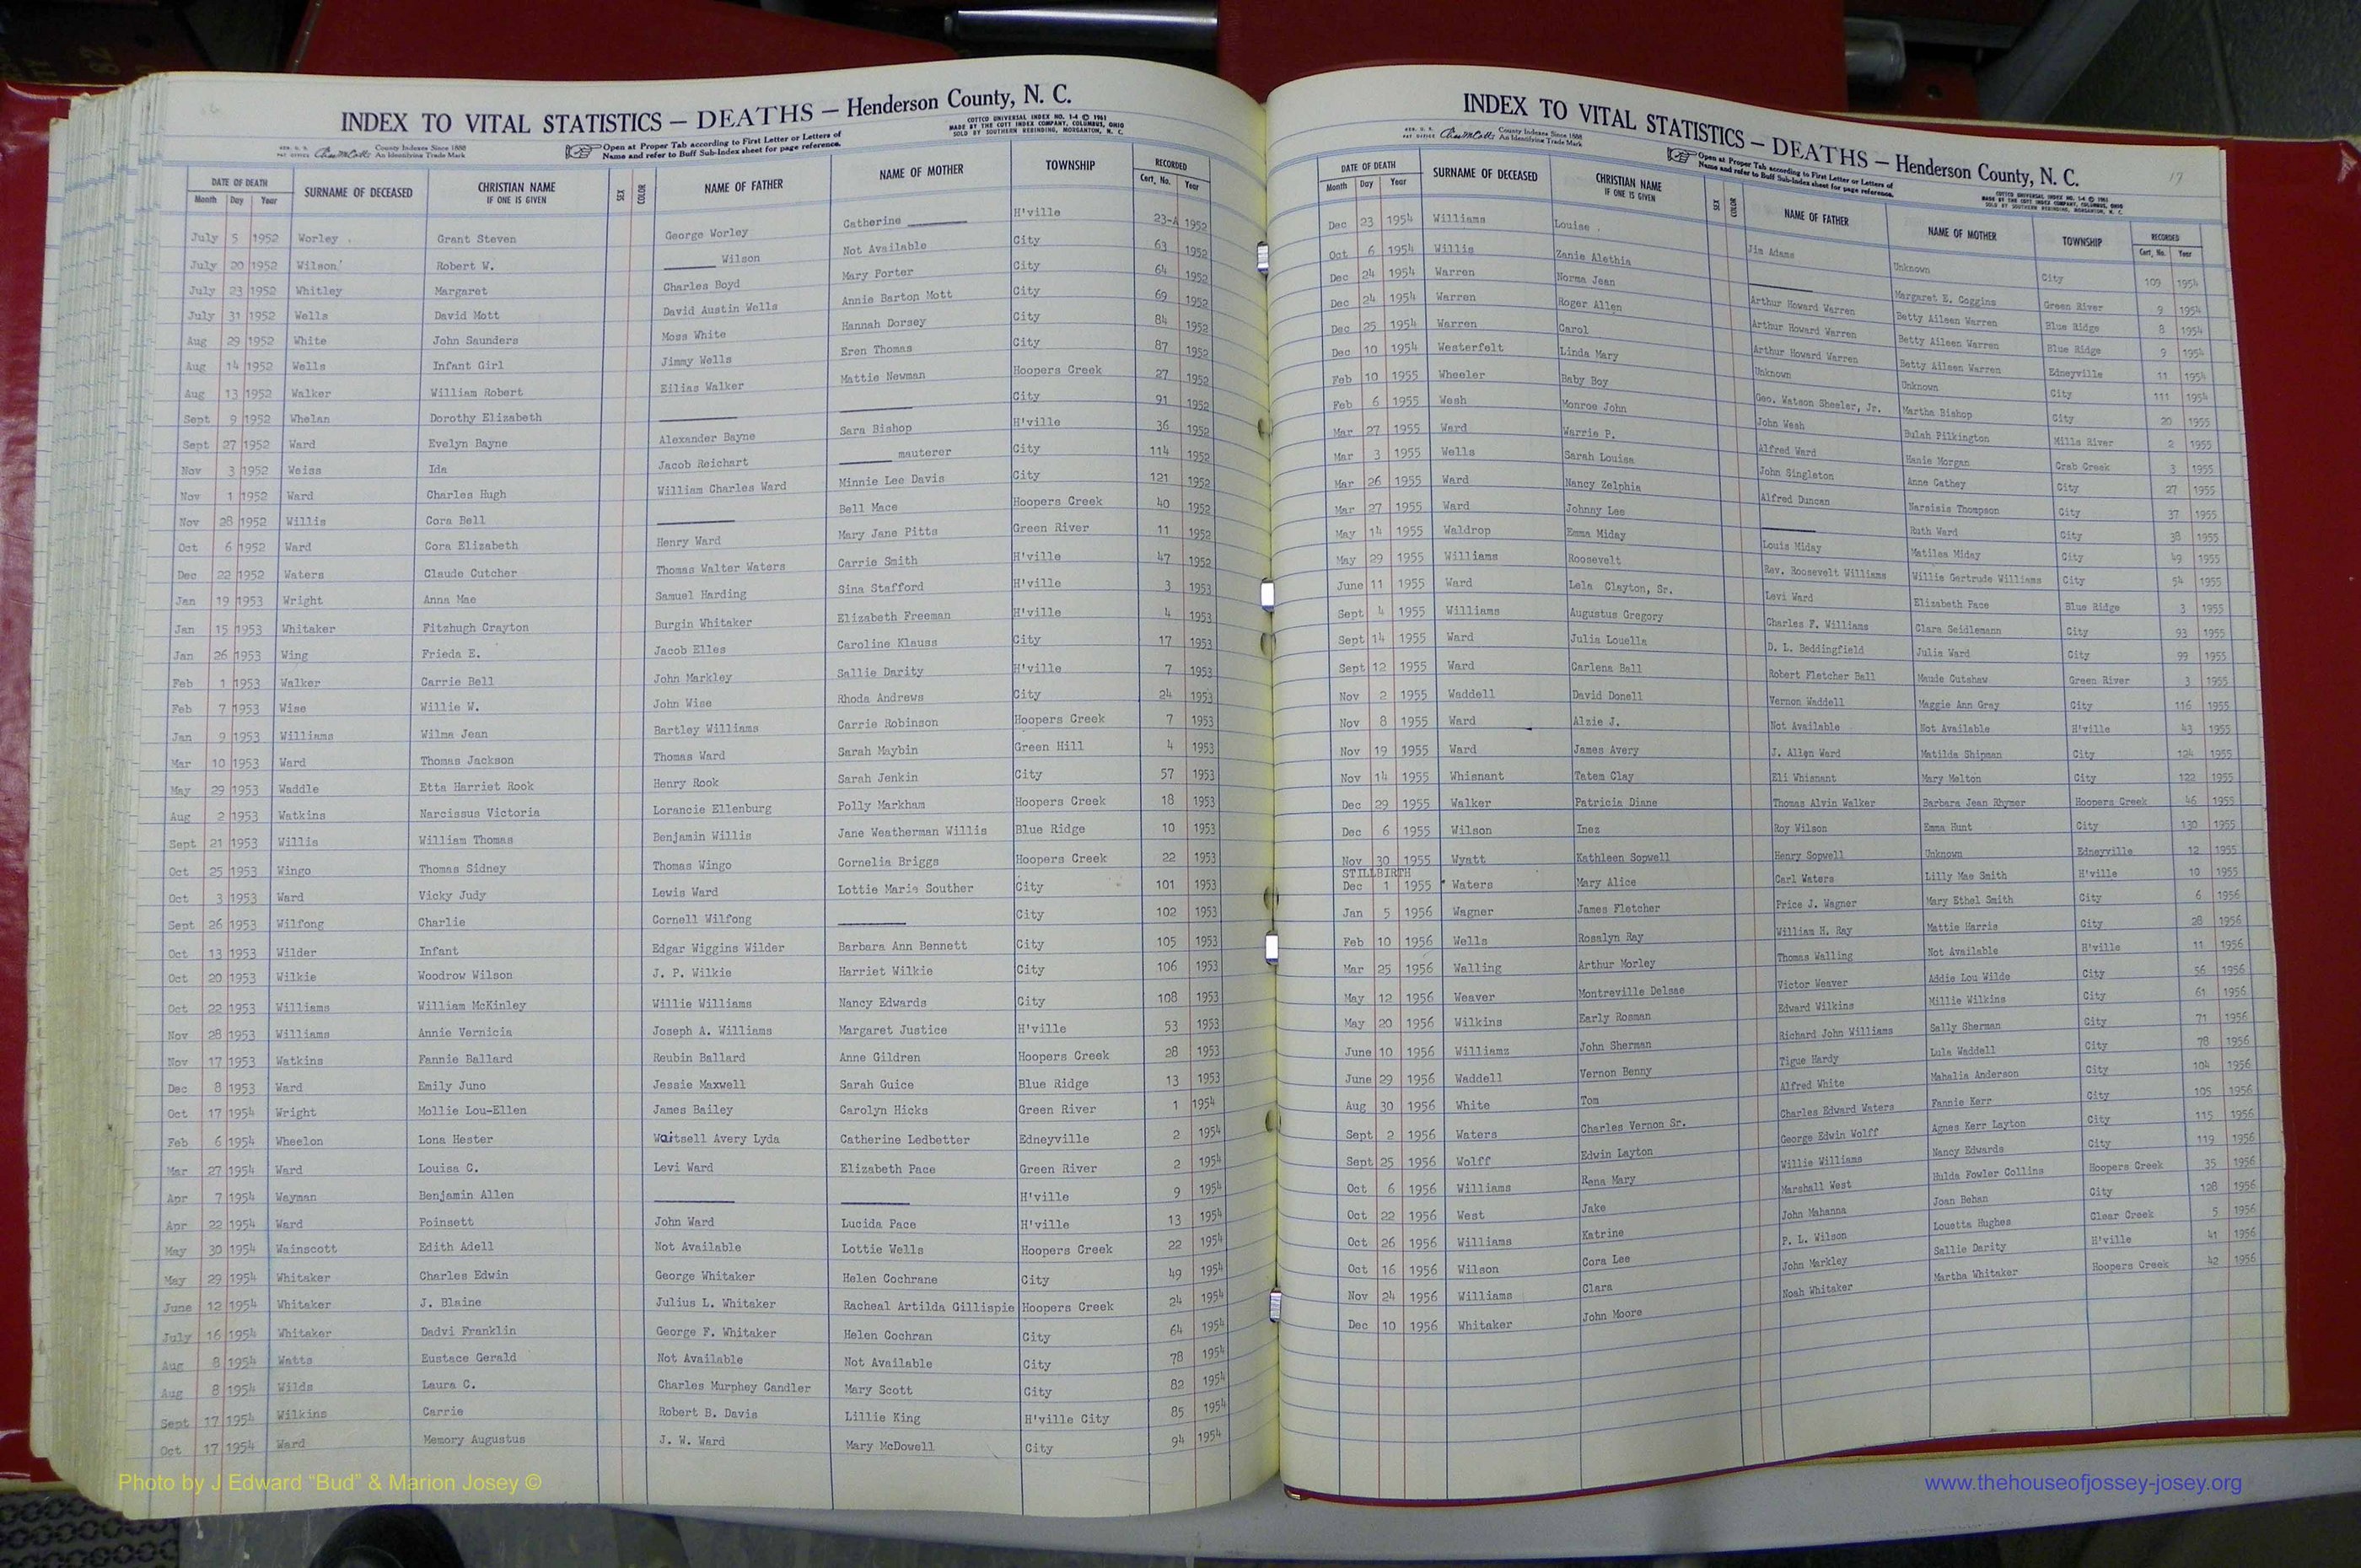 INDEX TO VITAL STATISTICS — DEATHS — Henderson County, N. C.
COTTCO UNIVERSAL INDEX NO. 1-4 © 1961
MADE BY THE COTT INDEX COMPANY, COLUMBUS, OHIO
SOLD BY SOUTHERN REBINDING, MORGANTON, N. C.
County Indexes Since 1888
An Identifying Trade Mark
Open at Proper Tab according to First Letter or Letters of
Name and refer to Buff Sub-Index sheet for page reference.
DATE OF DEATH SURNAME OF DECEASED CHRISTIAN NAME IF ONE IS GIVEN SEX COLOR NAME OF FATHER NAME OF MOTHER TOWNSHIP RECORDED
Month Day Year Cert. No. Year
July 5 1952 Worley Grant Steven George Worley Catherine H'ville 23-A 1952
July 20 1952 Wilson Robert W. Wilson Not Available City 63 1952
July 23 1952 Whitley Margaret Charles Boyd Mary Porter City 64 1952
July 31 1952 Wells David Mott David Austin Wells Annie Barton Mott City 69 1952
Aug 29 1952 White John Saunders Moss White Hannah Dorsey City 84 1952
Aug 14 1952 Wells Infant Girl Jimmy Wells Eren Thomas City 87 1952
Aug 13 1952 Walker William Robert Eilias Walker Mattie Newman Hoopers Creek 27 1952
Sept 9 1952 Whelan Dorothy Elizabeth City 91 1952
Sept 27 1952 Ward Evelyn Bayne Alexander Bayne Sara Bishop H'ville 36 1952
Nov 3 1952 Weiss Ida Jacob Reichart mauterer City 114 1952
Nov 1 1952 Ward Charles Hugh William Charles Ward Minnie Lee Davis City 121 1952
Nov 28 1952 Willis Cora Bell Bell Mace Hoopers Creek 40 1952
Oct 6 1952 Ward Cora Elizabeth Henry Ward Mary Jane Pitts Green River 11 1952
Dec 22 1952 Waters Claude Cutcher Thomas Walter Waters Carrie Smith H'ville 47 1952
Jan 19 1953 Wright Anna Mae Samuel Harding Sina Stafford H'ville 3 1953
Jan 15 1953 Whitaker Fitzhugh Crayton Burgin Whitaker Elizabeth Freeman H'ville 4 1953
Jan 26 1953 Wing Frieda E. Jacob Elles Caroline Klauss City 17 1953
Feb 1 1953 Walker Carrie Bell John Markley Sallie Darity H'ville 7 1953
Feb 7 1953 Wise Willie W. John Wise Rhoda Andrews City 24 1953
Jan 9 1953 Williams Wilma Jean Bartley Williams Carrie Robinson Hoopers Creek 7 1953
Mar 10 1953 Ward Thomas Jackson Thomas Ward Sarah Maybin Green Hill 4 1953
May 29 1953 Waddle Etta Harriet Rook Henry Rook Sarah Jenkin City 57 1953
Aug 2 1953 Watkins Narcissus Victoria Lorancie Ellenburg Polly Markham Hoopers Creek 18 1953
Sept 21 1953 Willis William Thomas Benjamin Willis Jane Weatherman Willis Blue Ridge 10 1953
Oct 25 1953 Wingo Thomas Sidney Thomas Wingo Cornelia Briggs Hoopers Creek 22 1953
Oct 3 1953 Ward Vicky Judy Lewis Ward Lottie Marie Souther City 101 1953
Sept 26 1953 Wilfong Charlie Cornell Wilfong City 102 1953
Oct 13 1953 Wilder Infant Edgar Wiggins Wilder Barbara Ann Bennett City 105 1953
Oct 20 1953 Wilkie Woodrow Wilson J. P. Wilkie Harriet Wilkie City 106 1953
Oct 22 1953 Williams William McKinley Willie Williams Nancy Edwards City 108 1953
Nov 28 1953 Williams Annie Vernicia Joseph A. Williams Margaret Justice H'ville 53 1953
Nov 17 1953 Watkins Fannie Ballard Reubin Ballard Anne Gildren Hoopers Creek 28 1953
Dec 8 1953 Ward Emily Juno Jessie Maxwell Sarah Guice Blue Ridge 13 1953
Oct 17 1954 Wright Mollie Lou-Ellen James Bailey Carolyn Hicks Green River 1 1954
Feb 6 1954 Wheelon Lona Hester Waitsell Avery Lyda Catherine Ledbetter Edneyville 2 1954
Mar 27 1954 Ward Louisa C. Levi Ward Elizabeth Pace Green River 2 1954
Apr 7 1954 Wayman Benjamin Allen H'ville 9 1954
Apr 22 1954 Ward Poinsett John Ward Lucida Pace H'ville 13 1954
May 30 1954 Wainscott Edith Adell Not Available Lottie Wells Hoopers Creek 22 1954
May 29 1954 Whitaker Charles Edwin George Whitaker Helen Cochrane City 49 1954
June 12 1954 Whitaker J. Blaine Julius L. Whitaker Racheal Artilda Gillispie Hoopers Creek 24 1954
July 16 1954 Whitaker Dadvi Franklin George F. Whitaker Helen Cochran City 64 1954
Aug 8 1954 Watts Eustace Gerald Not Available Not Available City 78 1954
Aug 8 1954 Wilds Laura C. Charles Murphey Candler Mary Scott City 82 1954
Sept 17 1954 Wilkins Carrie Robert B. Davis Lillie King H'ville City 85 1954
Oct 17 1954 Ward Memory Augustus J. W. Ward Mary McDowell City 94 1954
INDEX TO VITAL STATISTICS — DEATHS — Henderson County, N. C.
17
County Indexes Since 1888
An Identifying Trade Mark
Open at Proper Tab according to First Letter or Letters of
Name and refer to Buff Sub-Index sheet for page reference.
COTTCO UNIVERSAL INDEX NO. 1-4 © 1961
MADE BY THE COTT INDEX COMPANY, COLUMBUS, OHIO
SOLD BY SOUTHERN REBINDING, MORGANTON, N. C.
DATE OF DEATH SURNAME OF DECEASED CHRISTIAN NAME IF ONE IS GIVEN SEX COLOR NAME OF FATHER NAME OF MOTHER TOWNSHIP RECORDED
Month Day Year Cert. No. Year
Dec 23 1954 Williams Louise Jim Adams Unknown City 109 1954
Oct 6 1954 Willis Zanie Alethia Margaret E. Coggins Green River 9 1954
Dec 24 1954 Warren Norma Jean Arthur Howard Warren Betty Aileen Warren Blue Ridge 8 1954
Dec 24 1954 Warren Roger Allen Arthur Howard Warren Betty Aileen Warren Blue Ridge 9 1954
Dec 25 1954 Warren Carol Arthur Howard Warren Betty Aileen Warren Edneyville 11 1954
Dec 10 1954 Westerfelt Linda Mary Unknown Unknown City 111 1954
Feb 10 1955 Wheeler Baby Boy Geo. Watson Sheeler, Jr. Martha Bishop City 20 1955
Feb 6 1955 Wesh Monroe John John Wesh Bulah Pilkington Mills River 2 1955
Mar 27 1955 Ward Warrie P. Alfred Ward Hanie Morgan Crab Creek 3 1955
Mar 3 1955 Wells Sarah Louisa John Singleton Anne Cathey City 27 1955
Mar 26 1955 Ward Nancy Zelphia Alfred Duncan Narsisis Thompson City 37 1955
Mar 27 1955 Ward Johnny Lee Ruth Ward City 38 1955
May 14 1955 Waldrop Emma Miday Louis Miday Matilea Miday City 49 1955
May 29 1955 Williams Roosevelt Rev. Roosevelt Williams Willie Gertrude Williams City 54 1955
June 11 1955 Ward Lela Clayton, Sr. Levi Ward Elizabeth Pace Blue Ridge 3 1955
Sept 4 1955 Williams Augustus Gregory Charles F. Williams Clara Seidlemann City 93 1955
Sept 14 1955 Ward Julia Louella D. L. Beddingfield Julia Ward City 99 1955
Sept 12 1955 Ward Carlena Ball Robert Fletcher Ball Maude Cutshaw Green River 3 1955
Nov 2 1955 Waddell David Donell Vernon Waddell Maggie Ann Gray City 116 1955
Nov 8 1955 Ward Alzie J. Not Available Not Available H'ville 43 1955
Nov 19 1955 Ward James Avery J. Allen Ward Matilda Shipman City 124 1955
Nov 14 1955 Whisnant Tatem Clay Eli Whisnant Mary Melton City 122 1955
Dec 29 1955 Walker Patricia Diane Thomas Alvin Walker Barbara Jean Rhymer Hoopers Creek 46 1955
Dec 6 1955 Wilson Inez Roy Wilson Emma Hunt City 130 1955
Nov 30 1955 Wyatt Kathleen Sopwell Henry Sopwell Unknown Edneyville 12 1955
STILLBIRTH
Dec 1 1955 Waters Mary Alice Carl Waters Lilly Mae Smith H'ville 10 1955
Jan 5 1956 Wagner James Fletcher Price J. Wagner Mary Ethel Smith City 6 1956
Feb 10 1956 Wells Rosalyn Ray William H. Ray Mattie Harris City 28 1956
Mar 25 1956 Walling Arthur Morley Thomas Walling Not Available H'ville 11 1956
May 12 1956 Weaver Montreville Delsae Victor Weaver Addie Lou Wilde City 56 1956
May 20 1956 Wilkins Early Rosman Edward Wilkins Millie Wilkins City 61 1956
June 10 1956 Williamz John Sherman Richard John Williams Sally Sherman City 71 1956
June 29 1956 Waddell Vernon Benny Tigue Hardy Lula Waddell City 78 1956
Aug 30 1956 White Tom Alfred White Mahalia Anderson City 104 1956
Sept 2 1956 Waters Charles Vernon Sr. Charles Edward Waters Fannie Kerr City 105 1956
Sept 25 1956 Wolff Edwin Layton George Edwin Wolff Agnes Kerr Layton City 115 1956
Oct 6 1956 Williams Rena Mary Willie Williams Nancy Edwards City 119 1956
Oct 22 1956 West Jake Marshall West Hulda Fowler Collins Hoopers Creek 35 1956
Oct 26 1956 Williams Katrine John Mahanna Joan Behan City 128 1956
Oct 16 1956 Wilson Cora Lee P. L. Wilson Louetta Hughes Clear Creek 5 1956
Nov 24 1956 Williams Clara John Markley Sallie Darity H'ville 41 1956
Dec 10 1956 Whitaker John Moore Noah Whitaker Martha Whitaker Hoopers Creek 42 1956
Photo by J Edward "Bud" & Marion Josey ©
www.thehouseofjossey-josey.org